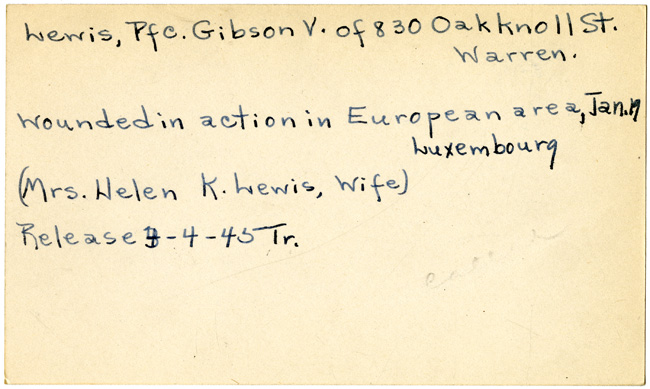 Lewis, Pfc. Gibson V. of 830 Oak Knoll St.
Warren.
Wounded in action in European area, Jan. 19
Luxembourg
(Mrs. Helen K. Lewis, Wife)
Release -4-45 Tr.